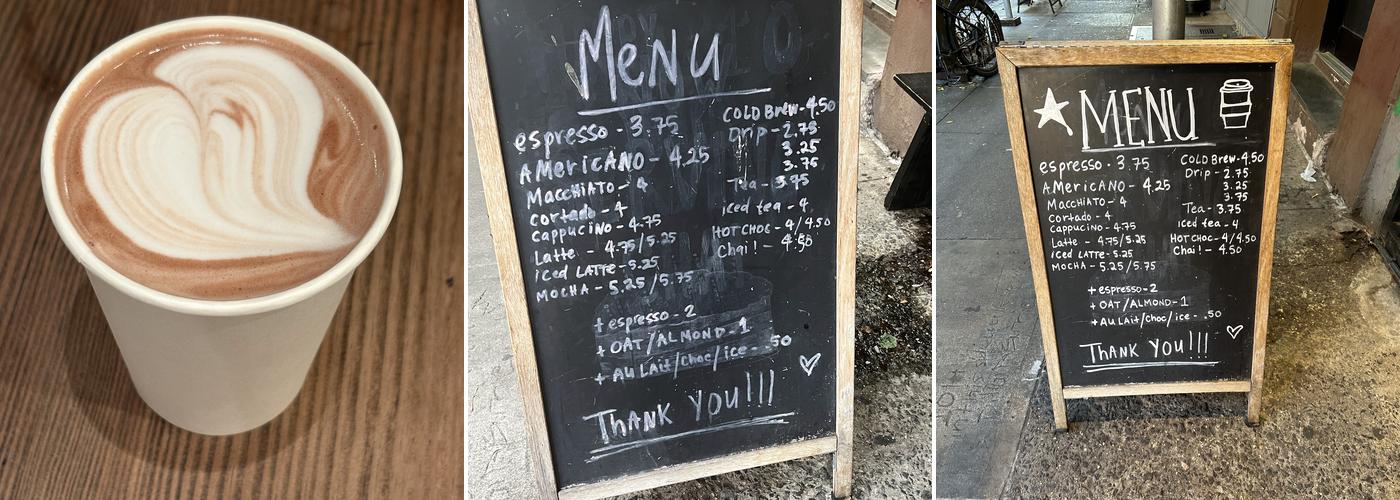 MeNU
espresso - 3.75
AMericANO - 4.25
MaccHiATO - 4
cortado - 4
cappuccino - 4.75
Latte - 4.75/5.25
iced LATTE - 5.25
MOCHA - 5.25/5.75
COLD Brew - 4.50
Drip - 2.75
3.25
3.75
Tea - 3.75
iced tea - 4
HOT CHOC - 4/4.50
Chai! - 4.50
+ espresso - 2
+ OAT/ALMOND - 1
+ AU LAit/choc/ice - .50
THANK YOU!!!
MENU
espresso - 3.75
AMericANO - 4.25
MACCHiATO - 4
Cortado - 4
Cappuccino - 4.75
Latte - 4.75/5.25
iced LATTE - 5.25
MOCHA - 5.25/5.75
COLD Brew - 4.50
Drip - 2.75
3.25
3.75
Tea - 3.75
iced tea - 4
HOT CHOC - 4/4.50
Chai! - 4.50
+ espresso - 2
+ OAT/ALMOND - 1
+ AU LAit/choc/ice - .50
THANK YOU!!!